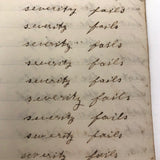 severity fails
severity fails
severity fails
severity fails
severity fails
severity fails
severity fails
severity fails
severity fails